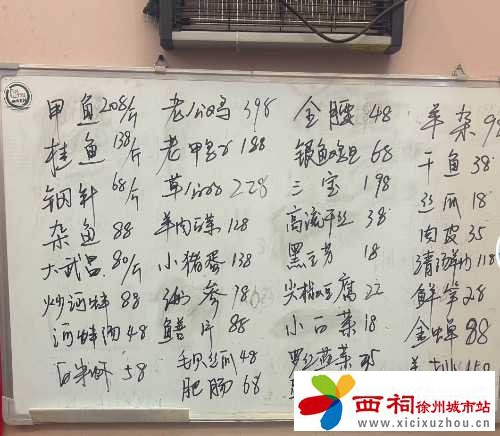 甲鱼208/斤
桂鱼138/斤
钢针68/斤
杂鱼88
大武昌80/斤
炒河蚌88
河蚌肉48
白米虾58
老公鸡398
老鸭188
草公鸡228
羊肉豆菜128
小猪蛋138
海参78
鳝片88
毛贝丝瓜48
肥肠68
全腰48
银鱼蛋68
三宝198
高流干丝38
黑豆芽18
尖椒豆腐22
小白菜18
罗红蒸菜25
羊杂9
干鱼38
丝瓜18
肉皮35
清汤118
鲜笋28
金蝉88
羊排15
西祠徐州城市站
www.xicixuzhou.cn